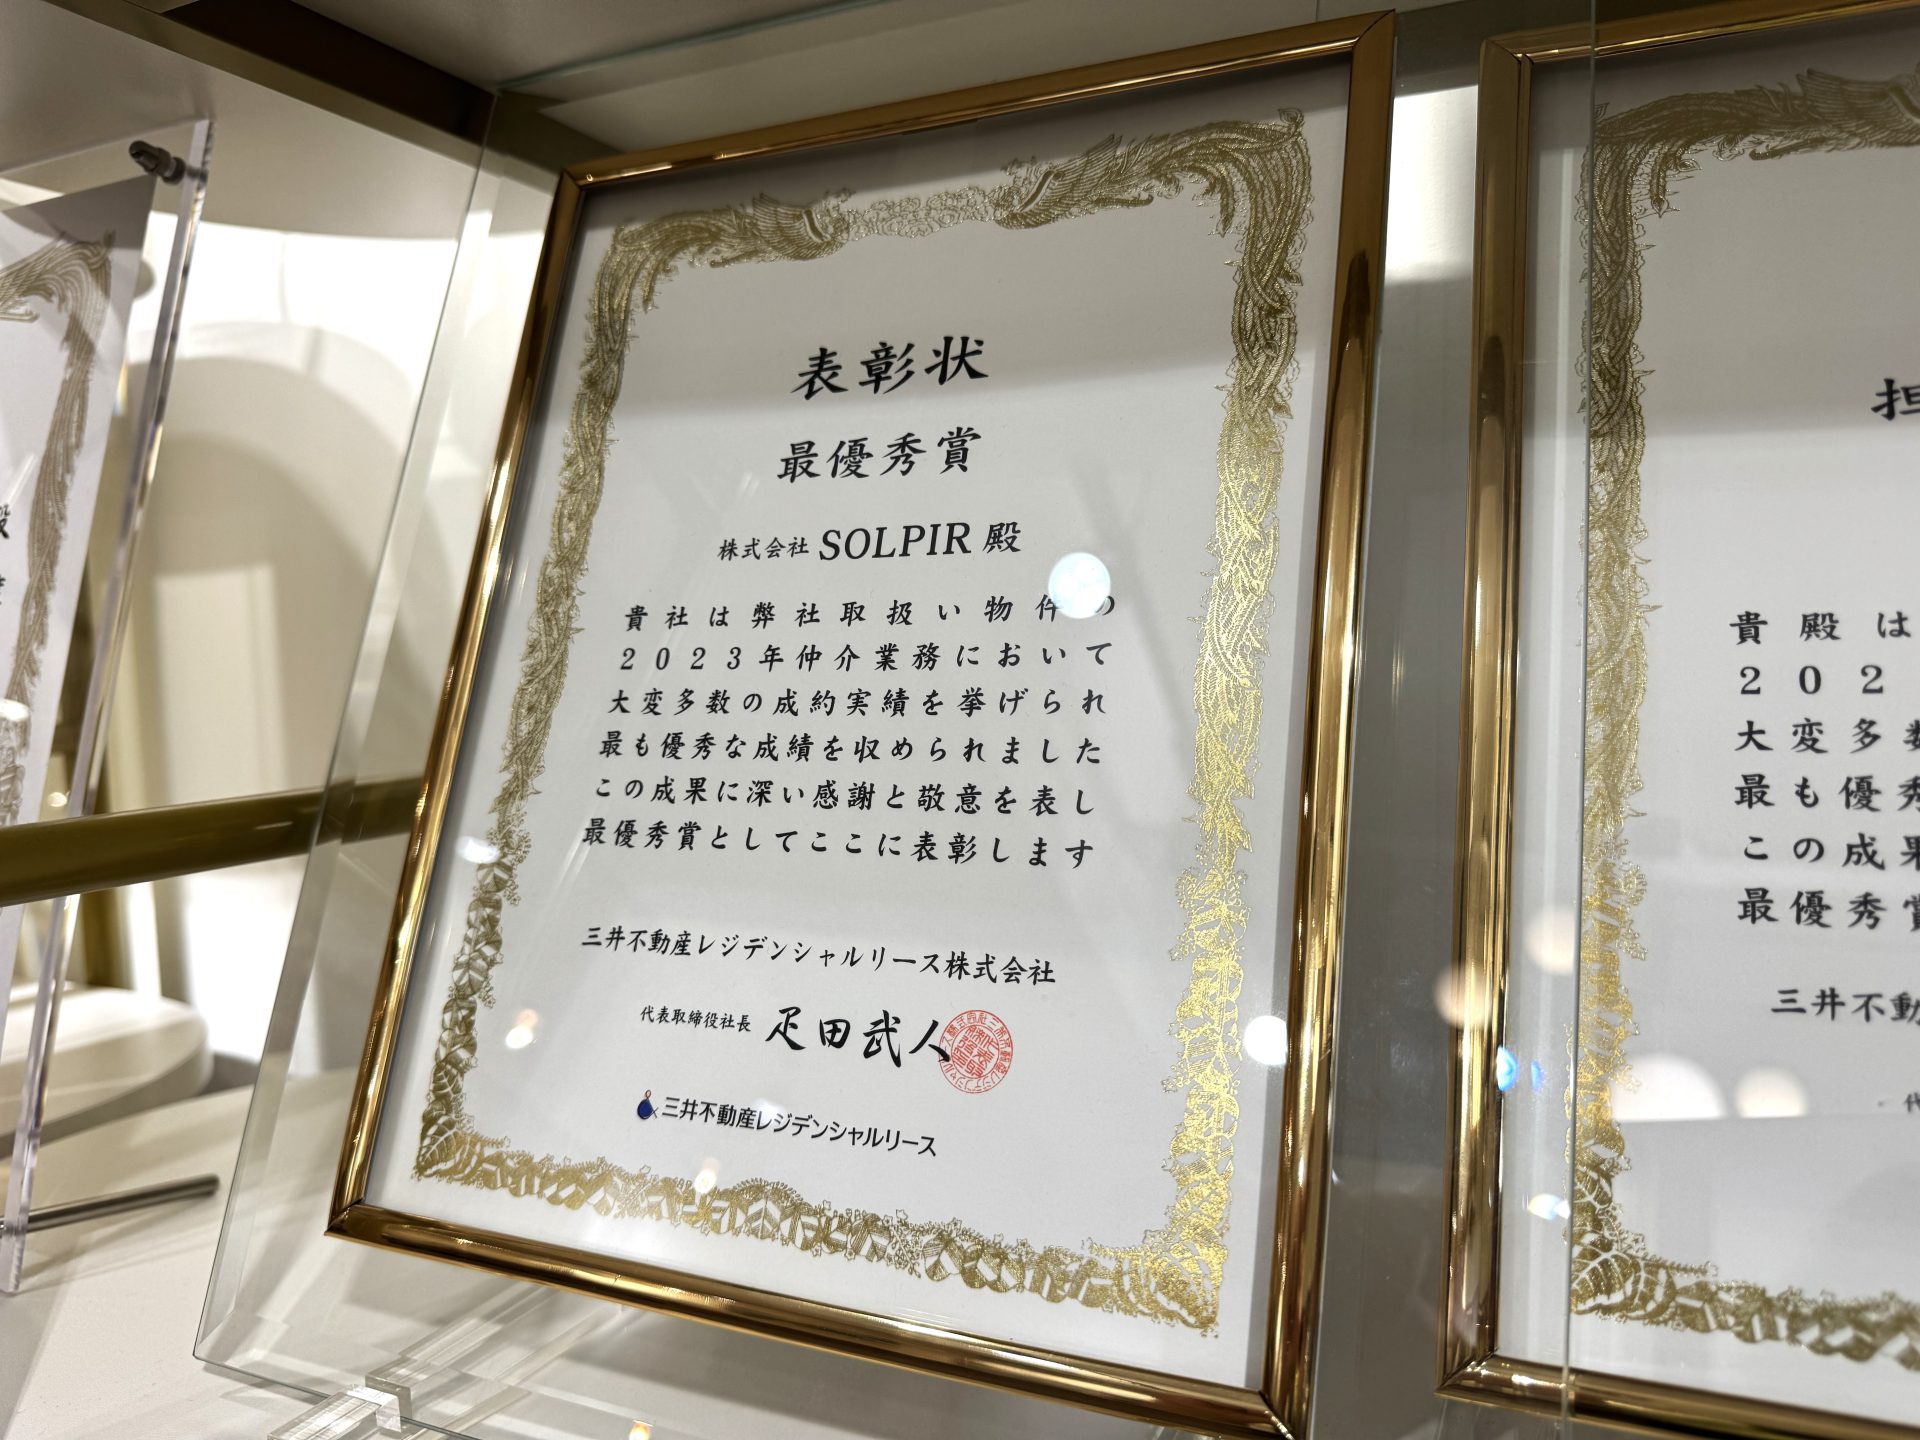 表彰状
最優秀賞
株式会社 SOLPIR 殿
貴社は弊社取扱い物件の
2023年仲介業務において
大変多数の成約実績を挙げられ
最も優秀な成績を収められました
この成果に深い感謝と敬意を表し
最優秀賞としてここに表彰します
三井不動産レジデンシャルリース株式会社
代表取締役社長 疋田武人
三井不動産レジデンシャルリース
担
貴殿は
202
大変多
最も優秀
この成果
最優秀賞
三井不動
代
殿